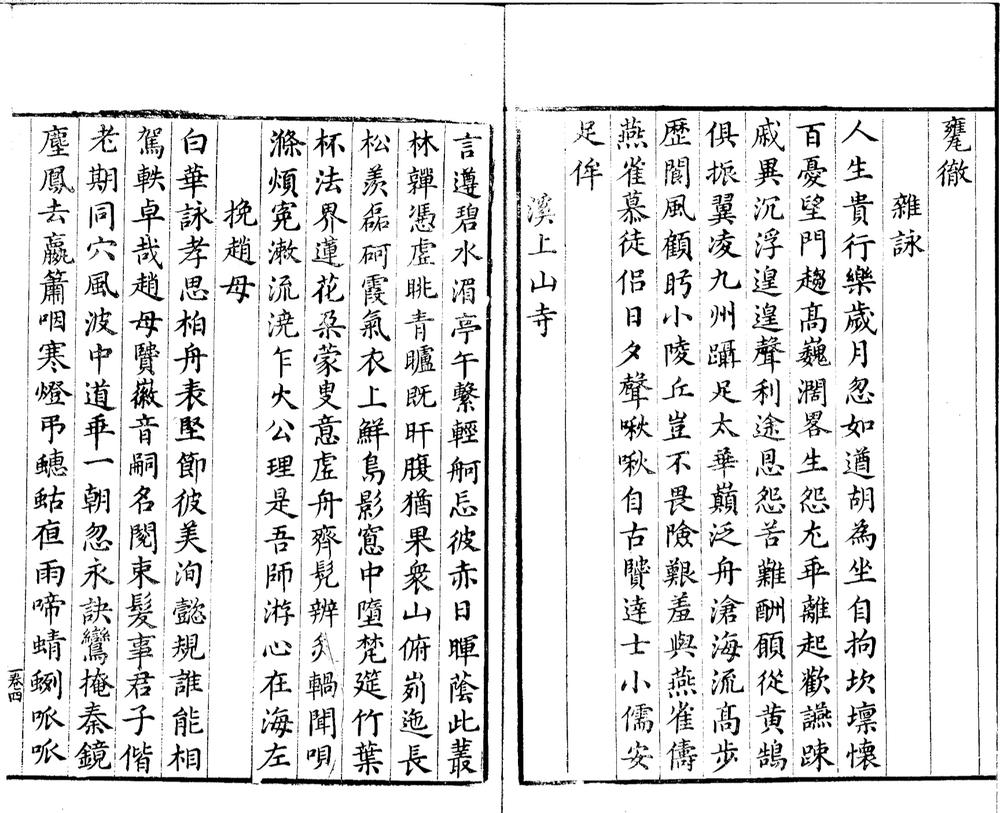 甕徹
雜詠
人生貴行樂歲月忽如遒胡為坐自拘坎壈懷
百憂望門趨髙巍濶畧生怨尤乖離起歡讌踈
戚異沉浮遑遑聲利途恩怨苦難酬願從黄鵠
俱振翼凌九州躡足太華巔泛舟滄海流髙步
歷閬風顧眄小陵丘豈不畏險艱羞與燕雀儔
燕雀慕徒侣日夕聲啾啾自古贒達士小儒安
足侔
溪上山寺
言遵碧水湄亭午繫輕舸忘彼赤日暉蔭此叢
林嚲憑虛眺青矑既旰腹猶果衆山俯峛迤長
松羡磊砢霞氣衣上鮮鳥影窓中墮梵筵竹葉
杯法界蓮花朶蒙叟意虛舟齊髠辨炙輠聞唄
滌煩寃漱流澆乍火公理是吾師游心在海左
挽趙母
白華詠孝思柏舟表堅節彼美洵懿規誰能相
駕軼卓哉趙母贒徽音嗣名閥束髮事君子偕
老期同穴風波中道乖一朝忽永訣鸞掩秦鏡
塵鳳去嬴簫咽寒燈弔蟪蛄夜雨啼蜻蛚呱呱
卷四